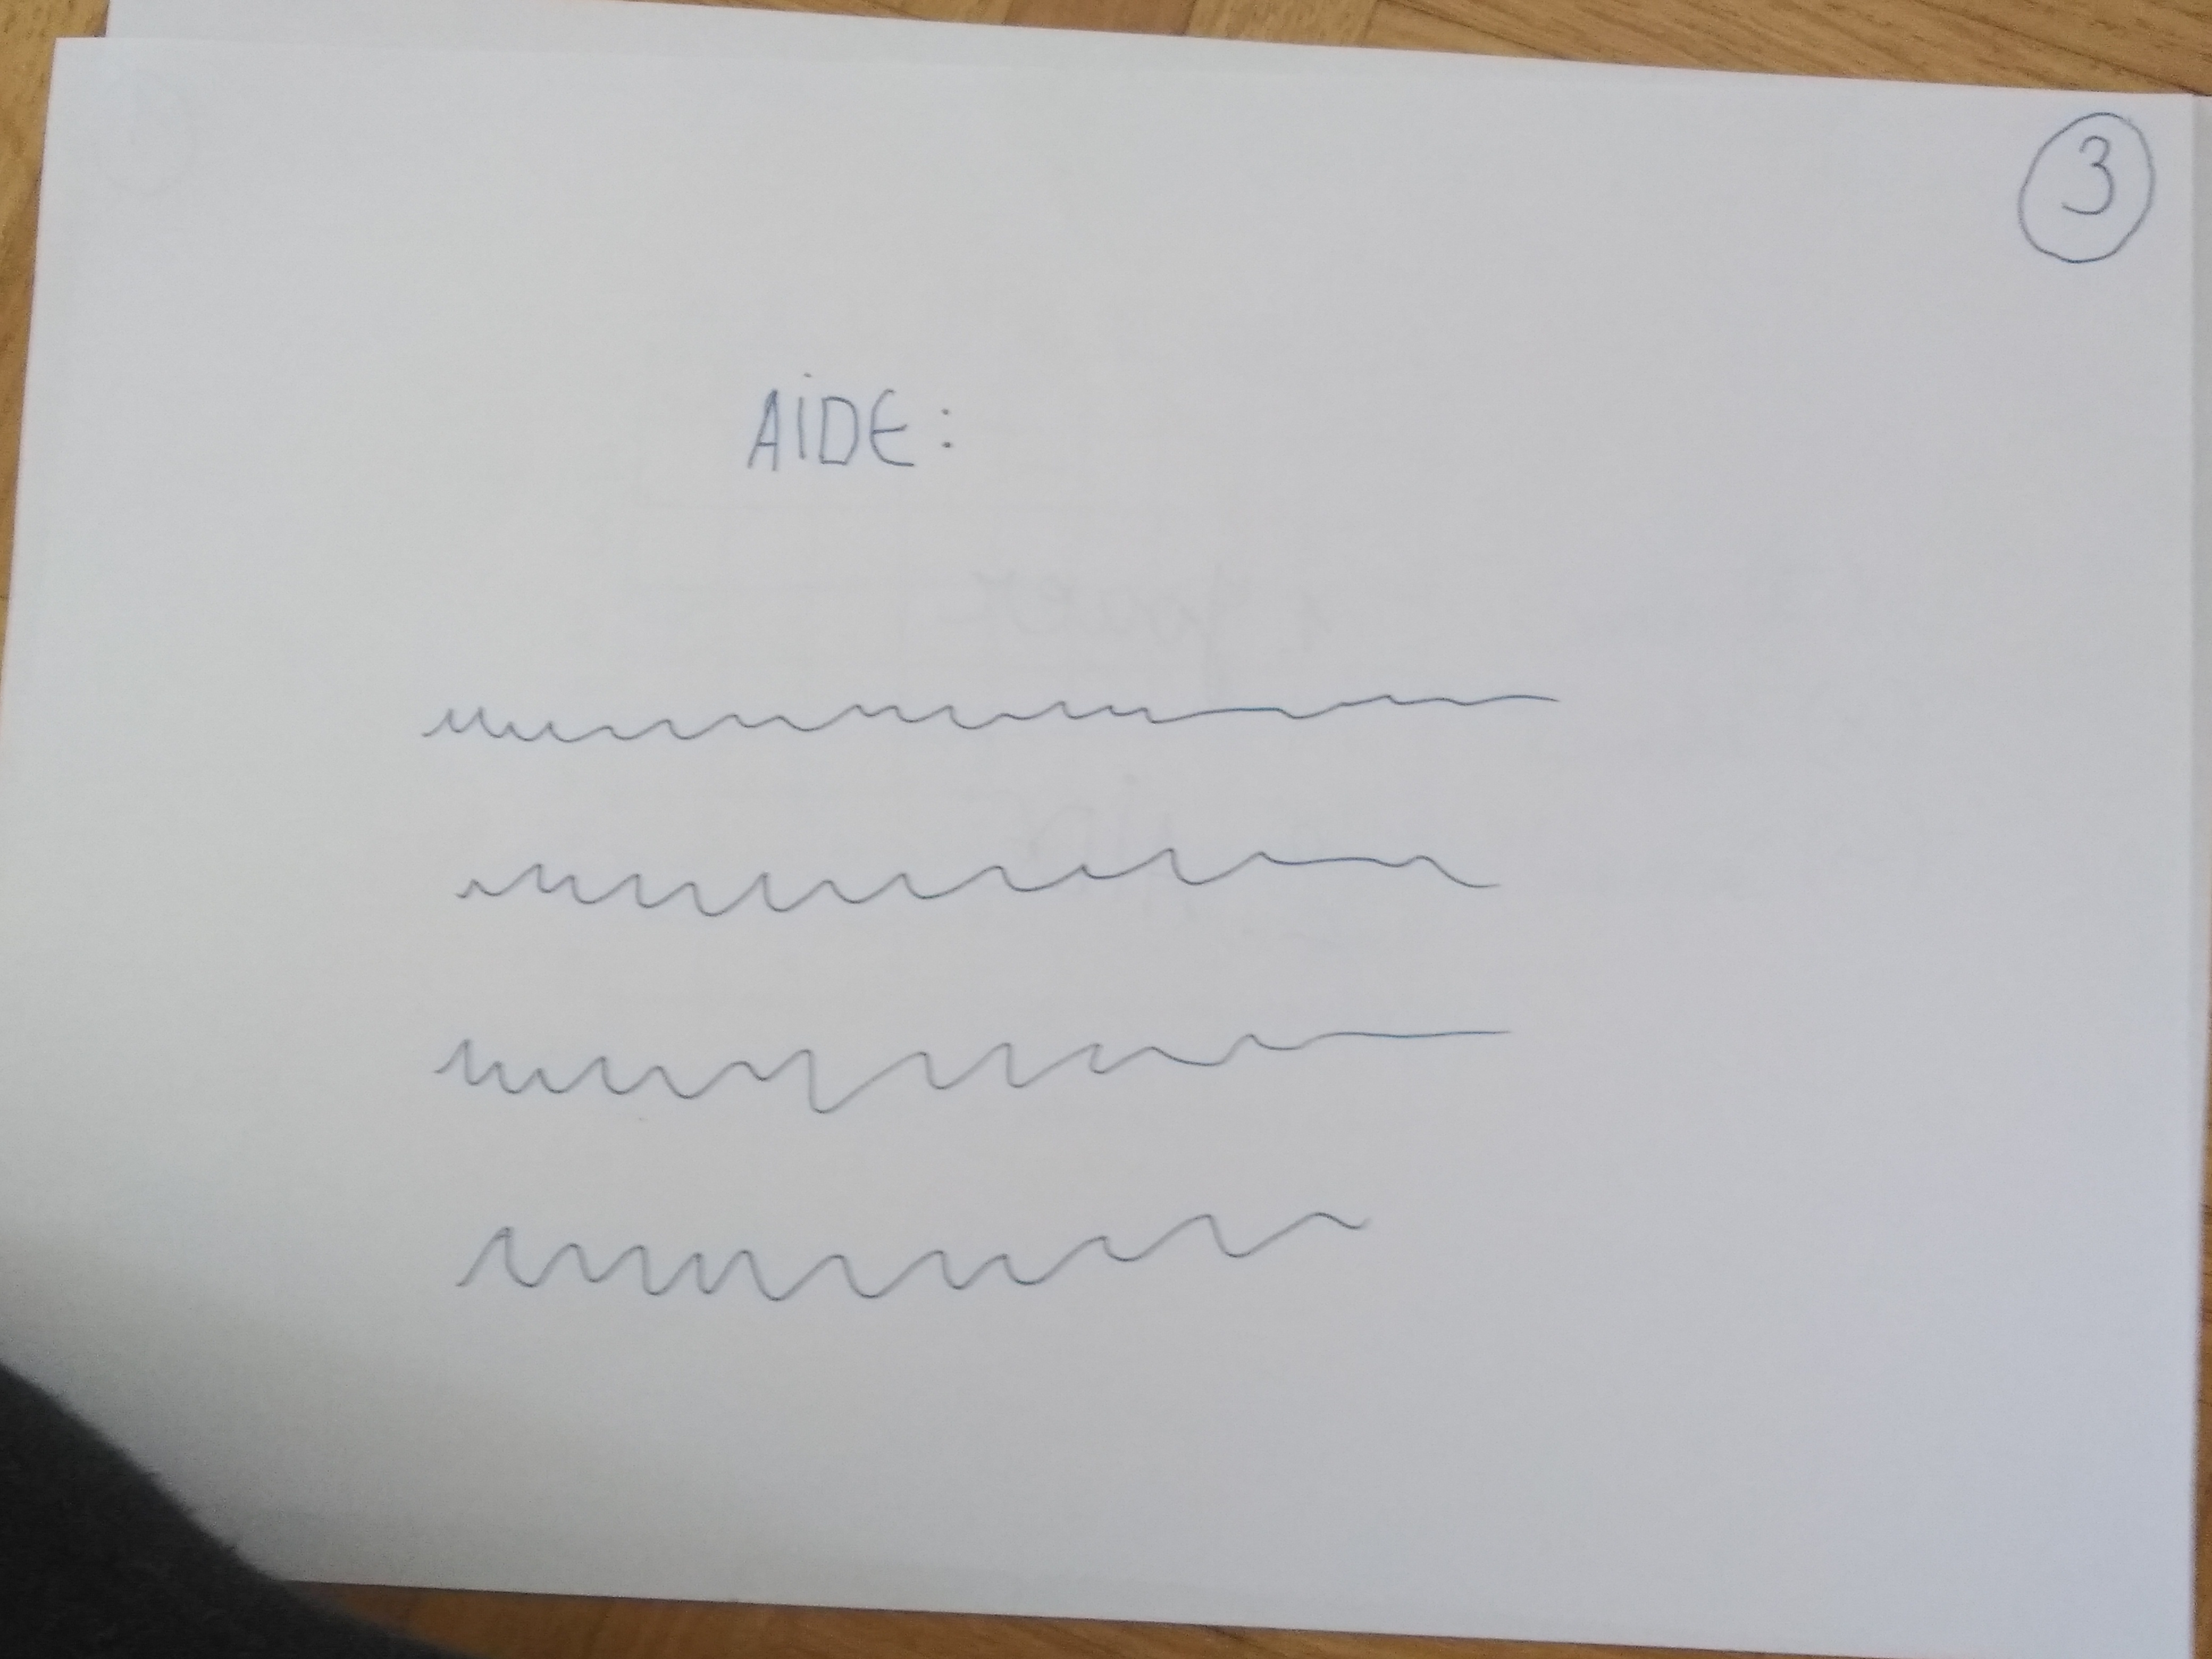 3
AiDE: